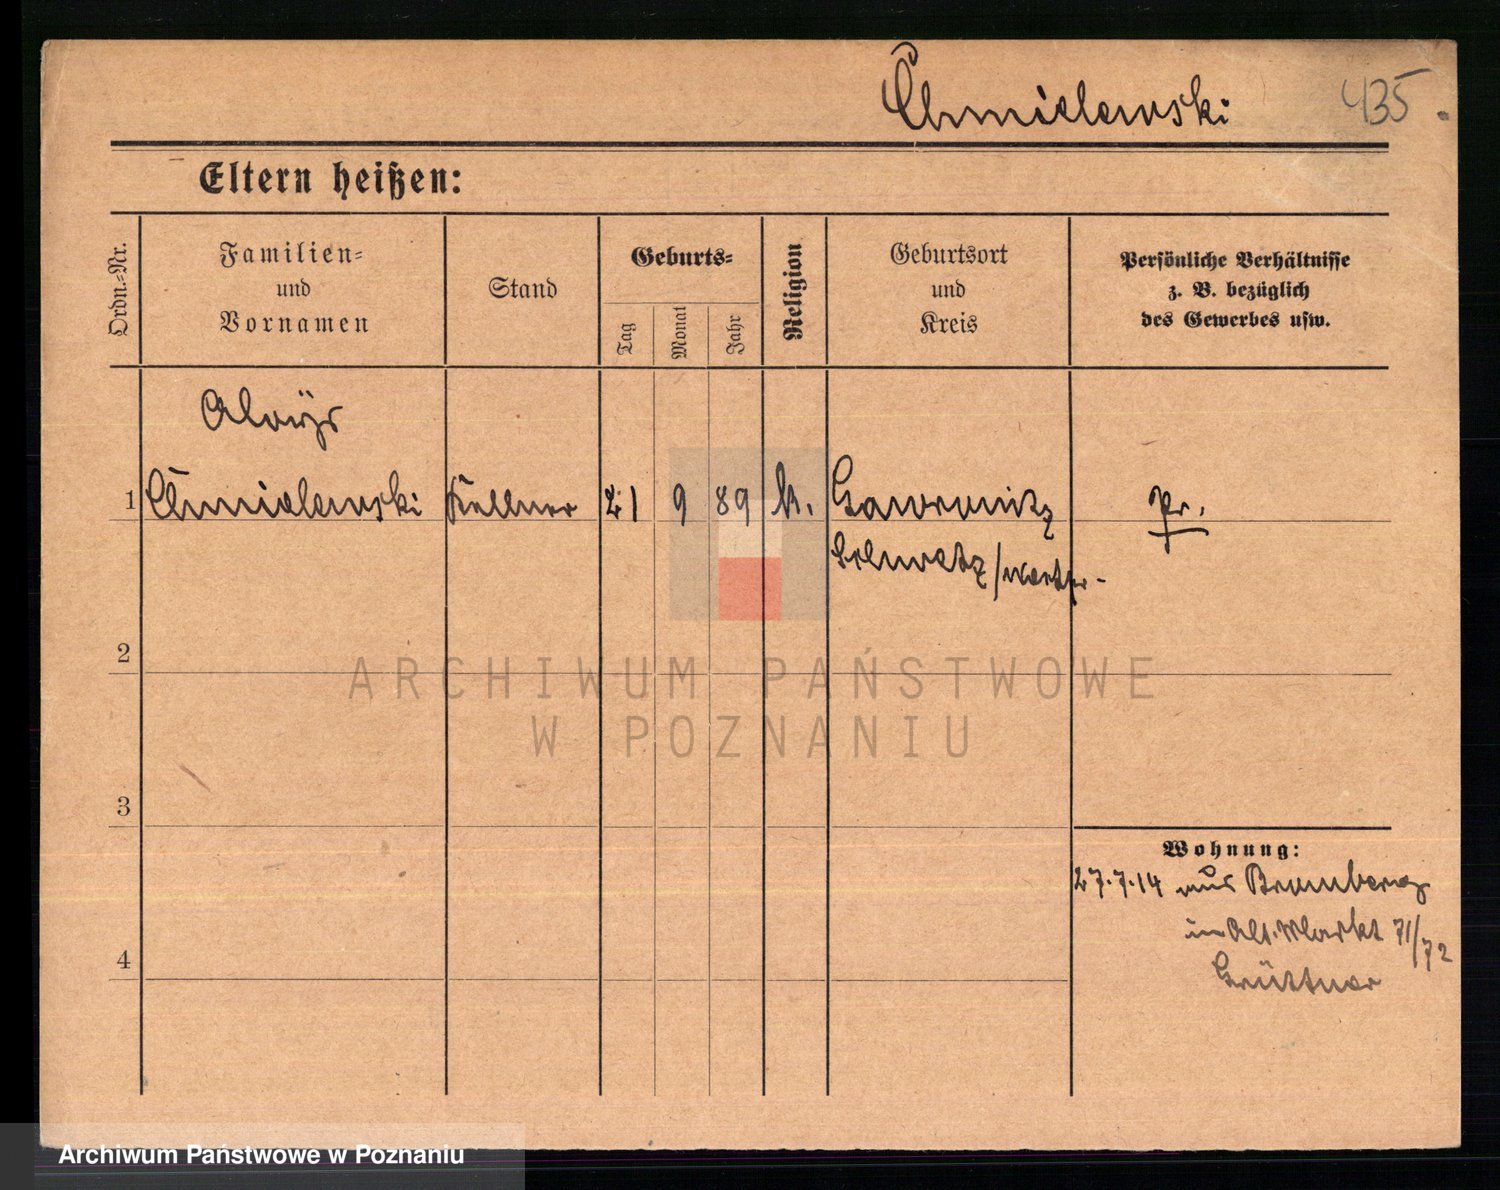 Chmielewski 435.
Eltern heißen:
Ordn.-Nr.
Familien-
und
Vornamen
Stand
Geburts-
Tag
Monat
Jahr
Religion
Geburtsort
und
Kreis
Persönliche Verhältnisse
z. B. bezüglich
des Gewerbes usw.
Aloÿs
1 Chmielewski Kellner 21 9 89 k. Gawronitz Pr.
Schwetz/Westpr-
2
ARCHIWUM PAŃSTWOWE
W POZNANIU
3
Wohnung:
27.7.14 aus Bromberg
in Alt. Markt 71/72
Grüttner
4
Archiwum Państwowe w Poznaniu